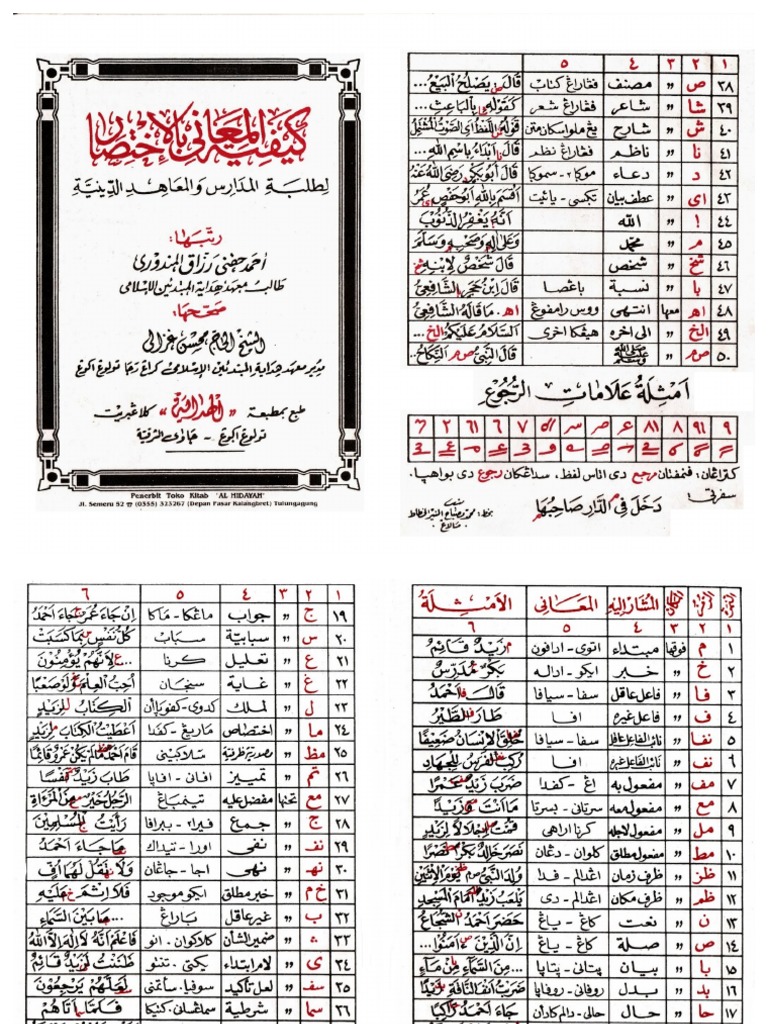 كيفية المعاني بالإختصار
لطلبة المدارس والمعاهد الدينية
رتبها:
أحمد حضى رزاق المندوري
طالب معهد هداية المبتدئين الإسلامى
صححها:
الشيخ الحاج محسن غزالى
مدير معهد هداية المبتدئين الإسلامى
طبع بمطبعة «الهداية» كلاغبريت
تولوغ اكوغ - جاوى الشرقية
Penerbit Toko Kitab 'AL HIDAYAH'
Jl. Semeru 82 ☎ (0355) 323267 (Depan Pasar Kalangbret) Tulungagung
١ ٢ ٣ ٤ ٥
٣٨ ص " مصنف فڠاراڠ كتاب قال يصلح البيع...
٣٩ شا " شاعر فڠاراڠ شعر كقوله بالباعث...
٤٠ ش " شارح قوله اللفظ اى الصوت المشتمل
٤١ نا " ناظم فڠاراڠ نظم قال أبداء باسم الله...
٤٢ د " دعاء موكا٢ - سموكا قال أبو بكر رضى الله عنه
٤٣ اى " عطف بيان أقسم بالله أبو حفص عمر
٤٤ ا " الله أنه يغفر الذنوب
٤٥ م " محمد وعلى آله وصحبه وسلم
٤٦ شخ " شخص قال شخص لابنه
٤٧ با " نسبة باغصا قال ابن حجر الشافعى
٤٨ اهـ معها انتهى ووس رامفوڠ اهـ. ما قاله الشافعى
٤٩ الخ " الى اخره هيڠكا اخرى السلام عليكم الخ
٥٠ ص م " صلى الله عليه وسلم قال النبى ص م النكاح
أمثلة علامات الرجوع
كتراڠان: فنمفتان مرجع دى اتاس لفظ، سداڠكان رجوع دى بواهيا.
سفرتى: دخل في الدار صاحبها
١ ٢ ٣ ٤ ٥ ٦
١٩ ج " جواب ماڠكا - ماكا إن جاء عمر جاء أحمد
٢٠ س " سببية سباب كل نفس بما كسبت
٢١ ع " تعليل كرنا ... لأنهم يؤمنون
٢٢ غ " غاية سنجان أحب العلم ولو صعبا
٢٣ ل " لملك الكتاب لزيد
٢٤ ما " اختصاص ماريڠ - كفدا أعطيت الكتاب لزيد
٢٥ مظ " مصدرية ظرفية قام أحمد مالم يكن عمرو قائما
٢٦ تم " تمييز افانى - افايا طاب زيد نفسا
٢٧ مع تحتها مفضل عليه تيمباڠ الرجل خير من المرءة
٢٨ ج " جمع فيرا٢ - ببرافا رأيت المسلمين
٢٩ نف " نفى اورا - تيداك ما جاء أحمد
٣٠ نهـ " نهى اجا - جاڠان ولا تقل لهما أف
٣١ خ م " خبر مطلق ايكو موجود فلا إثم عليه
٣٢ ب " غير عاقل باراڠ ... ما بين السماء
٣٣ ث " ضمير الشأن كلاكوان - انو فاعلم أنه لا إله إلا الله
٣٤ ى " لام ابتداء يكتى - تنتو ظننت لزيد قائم
٣٥ سف " لعل تأكيد سوفيا - لعلهم يرجعون
٣٦ سما " شرطية فلما أتاهم
المشار إليه المعانى الأمثلة
١ ٢ ٣ ٤ ٥ ٦
١ م فوقها مبتداء اتوى - ادافون زيد قائم
٢ خ " خبر ايكو - اداله بكر مدرس
٣ فا " فاعل عاقل سفا - سيافا قال أحمد
٤ ف " فاعل غيره افا طار الطير
٥ نفا " نائب الفاعل عاقل سفا - سيافا خلق الإنسان ضعيفا
٦ نف " نائب الفاعل غيره افا ركب الفرس للجهاد
٧ مف " مفعول به اڠ - كفدا ضرب زيد عمرا
٨ مع " مفعول معه سرتانى - بسرتا ما أنت وزيدا
٩ مل " مفعول لاجله كرنا اراهى قمت إجلالا لزيد
١٠ مط " مفعول مطلق كلوان - دڠان نصر خالد بكرا نصرا
١١ ظز " ظرف زمان اڠدالم - فدا ولد النبي ص م يوم الإثنين
١٢ ظم " ظرف مكان اڠدالم - دى يلعب زيد أمام المسجد
١٣ ن " نعت كاڠ - ياڠ حضر أحمد الشجاع
١٤ ص " صلة كاڠ - ياڠ إن الذين ءامنوا...
١٥ با " بيان بيتانى - پتايا ... من السماء من ماء
١٦ بد " بدل روفانى - روفايا ضربت أنف الناقة زيدا
١٧ حا " حال حالى - دالم كاداأن جاء أحمد راكبا